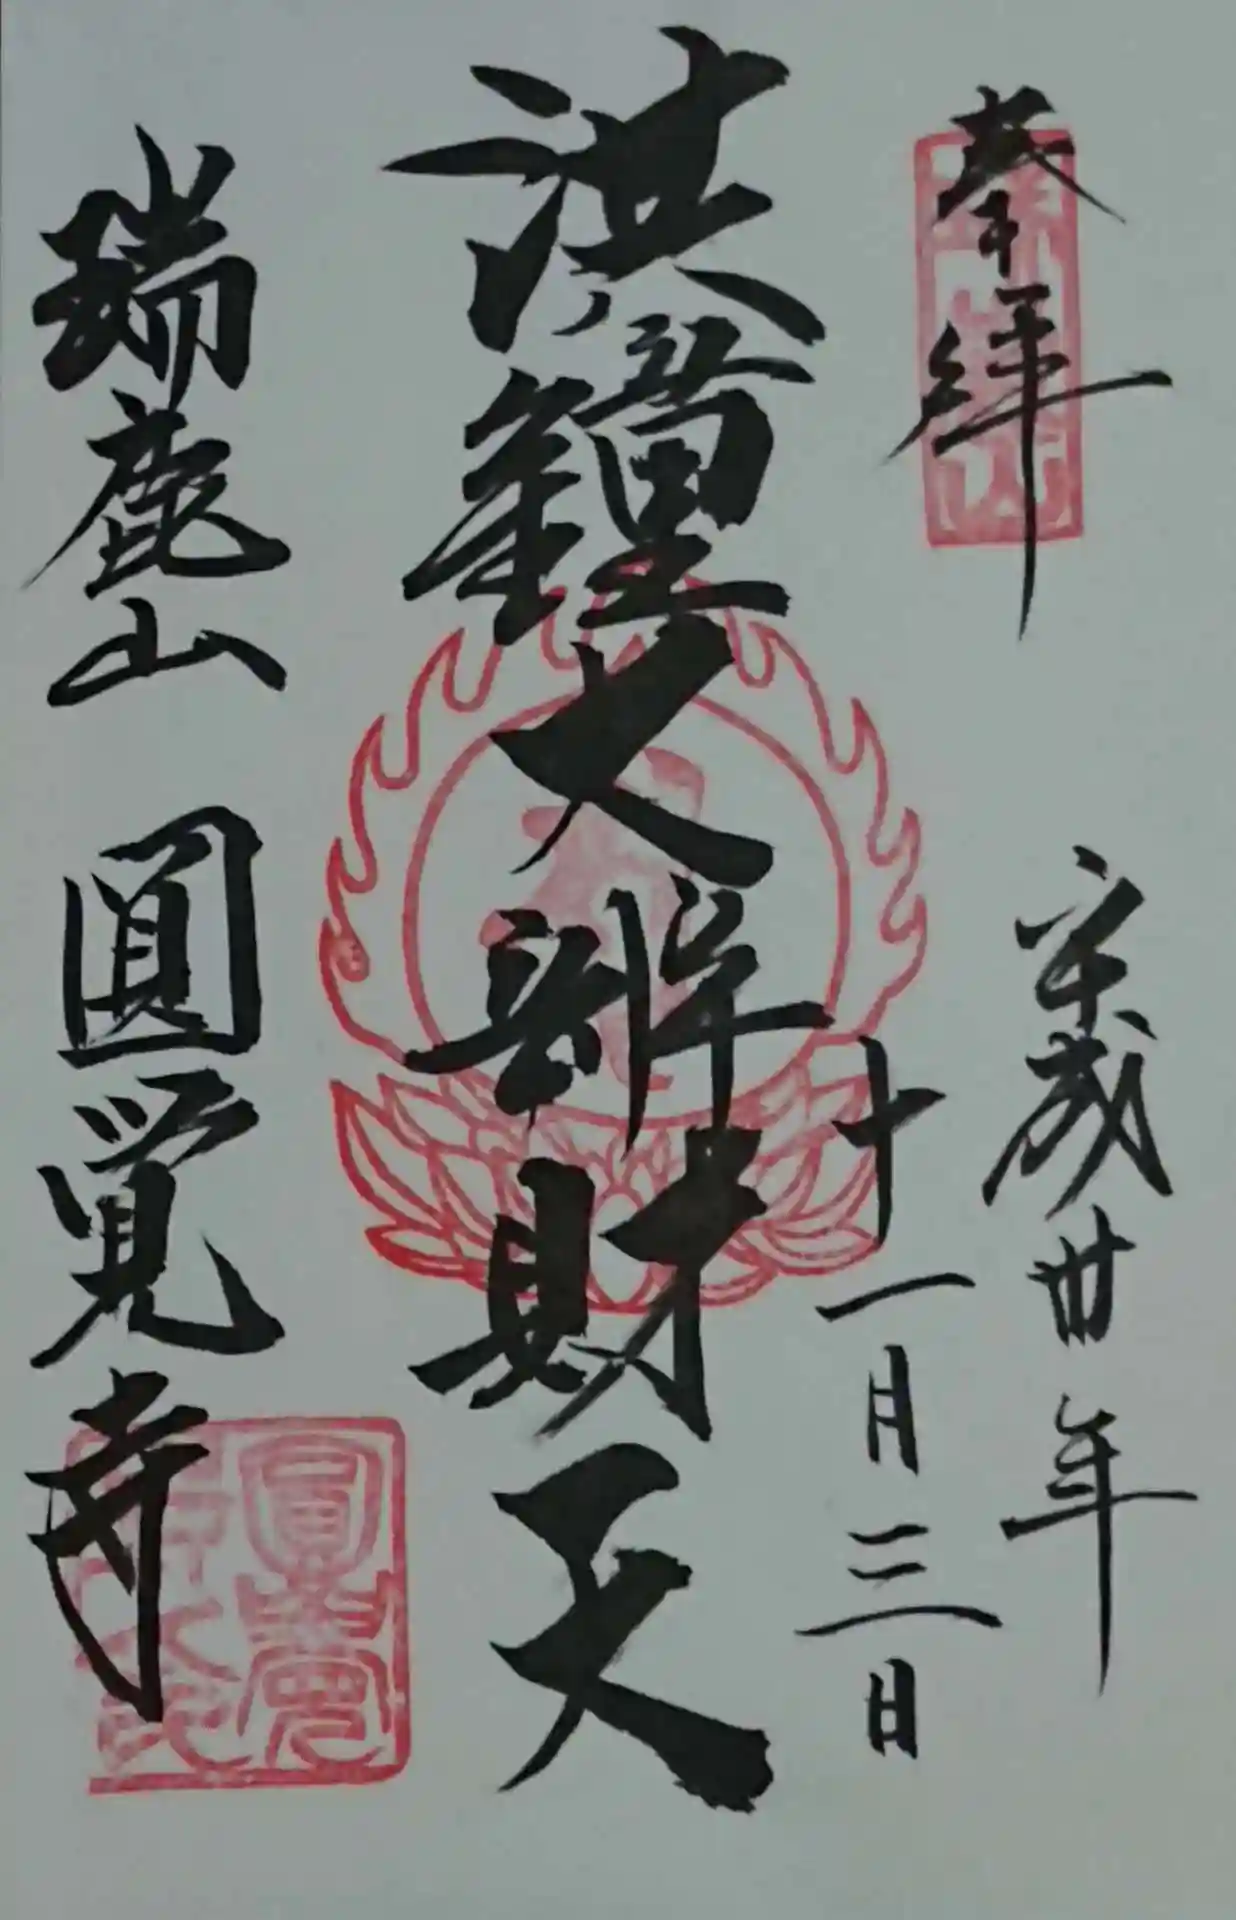 奉拝
平成卅年
十一月三日
洪鐘大辨財天
瑞鹿山 圓覚寺